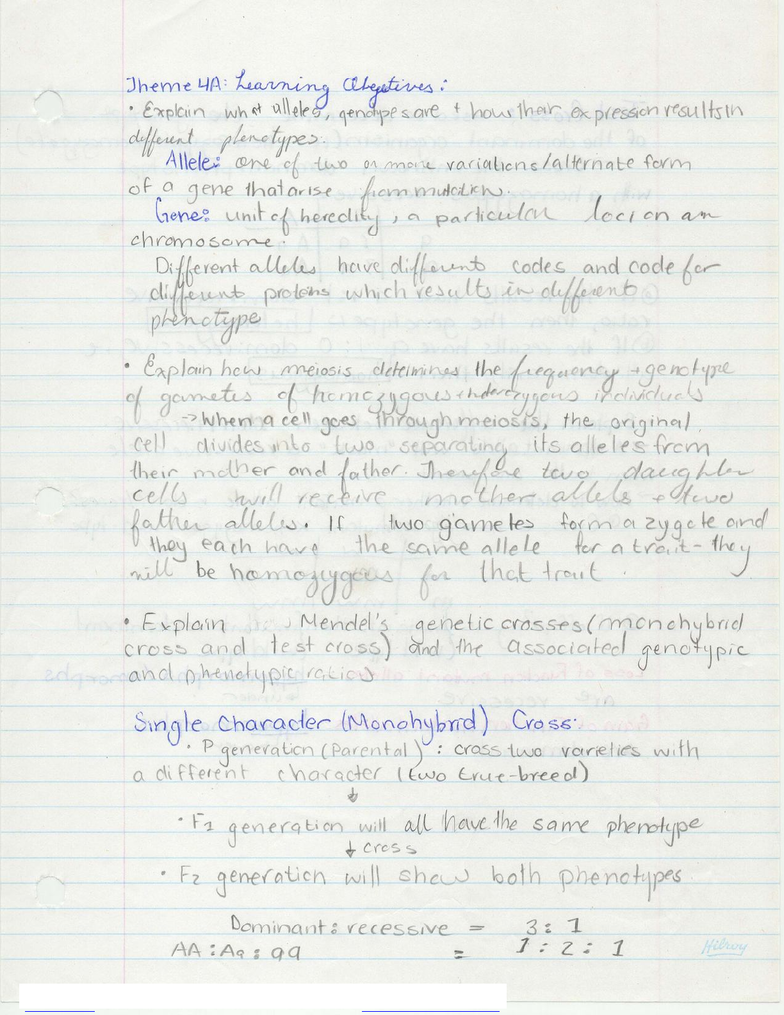 Theme 4A: Learning Objectives:
• Explain what alleles, genotypes are + how their expression results in
different phenotypes.
Allele: one of two or more variations/alternate form
of a gene that arise from mutation.
Gene: unit of heredity, a particular loci on an
chromosome.
Different alleles have different codes and code for
different protens which results in different
phenotype
• Explain how meiosis determines the frequency + genotype
of gametes of homozygous + heterozygous individuals
→ When a cell goes through meiosis, the original
cell divides into two separating its alleles from
their mother and father. Therefore two daughter
cells will receive mother allele + two
father alleles. If two gametes form a zygote and
they each have the same allele for a trait - they
will be homozygous for that trait.
• Explain Mendel's genetic crosses (monohybrid
cross and test cross) and the associated genotypic
and phenotypic ratios
Single Character (Monohybrid) Cross:
• P generation (Parental): cross two varieties with
a different character (two true-breed)
↓
• F1 generation will all have the same phenotype
↓ cross
• F2 generation will show both phenotypes
Dominant: recessive = 3:1
AA:Aa:aa = 1:2:1